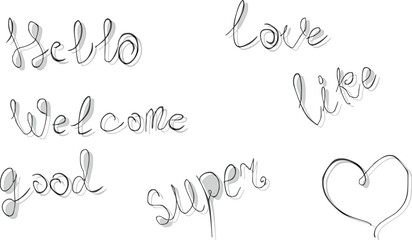 Hello
love
like
Welcome
good
super